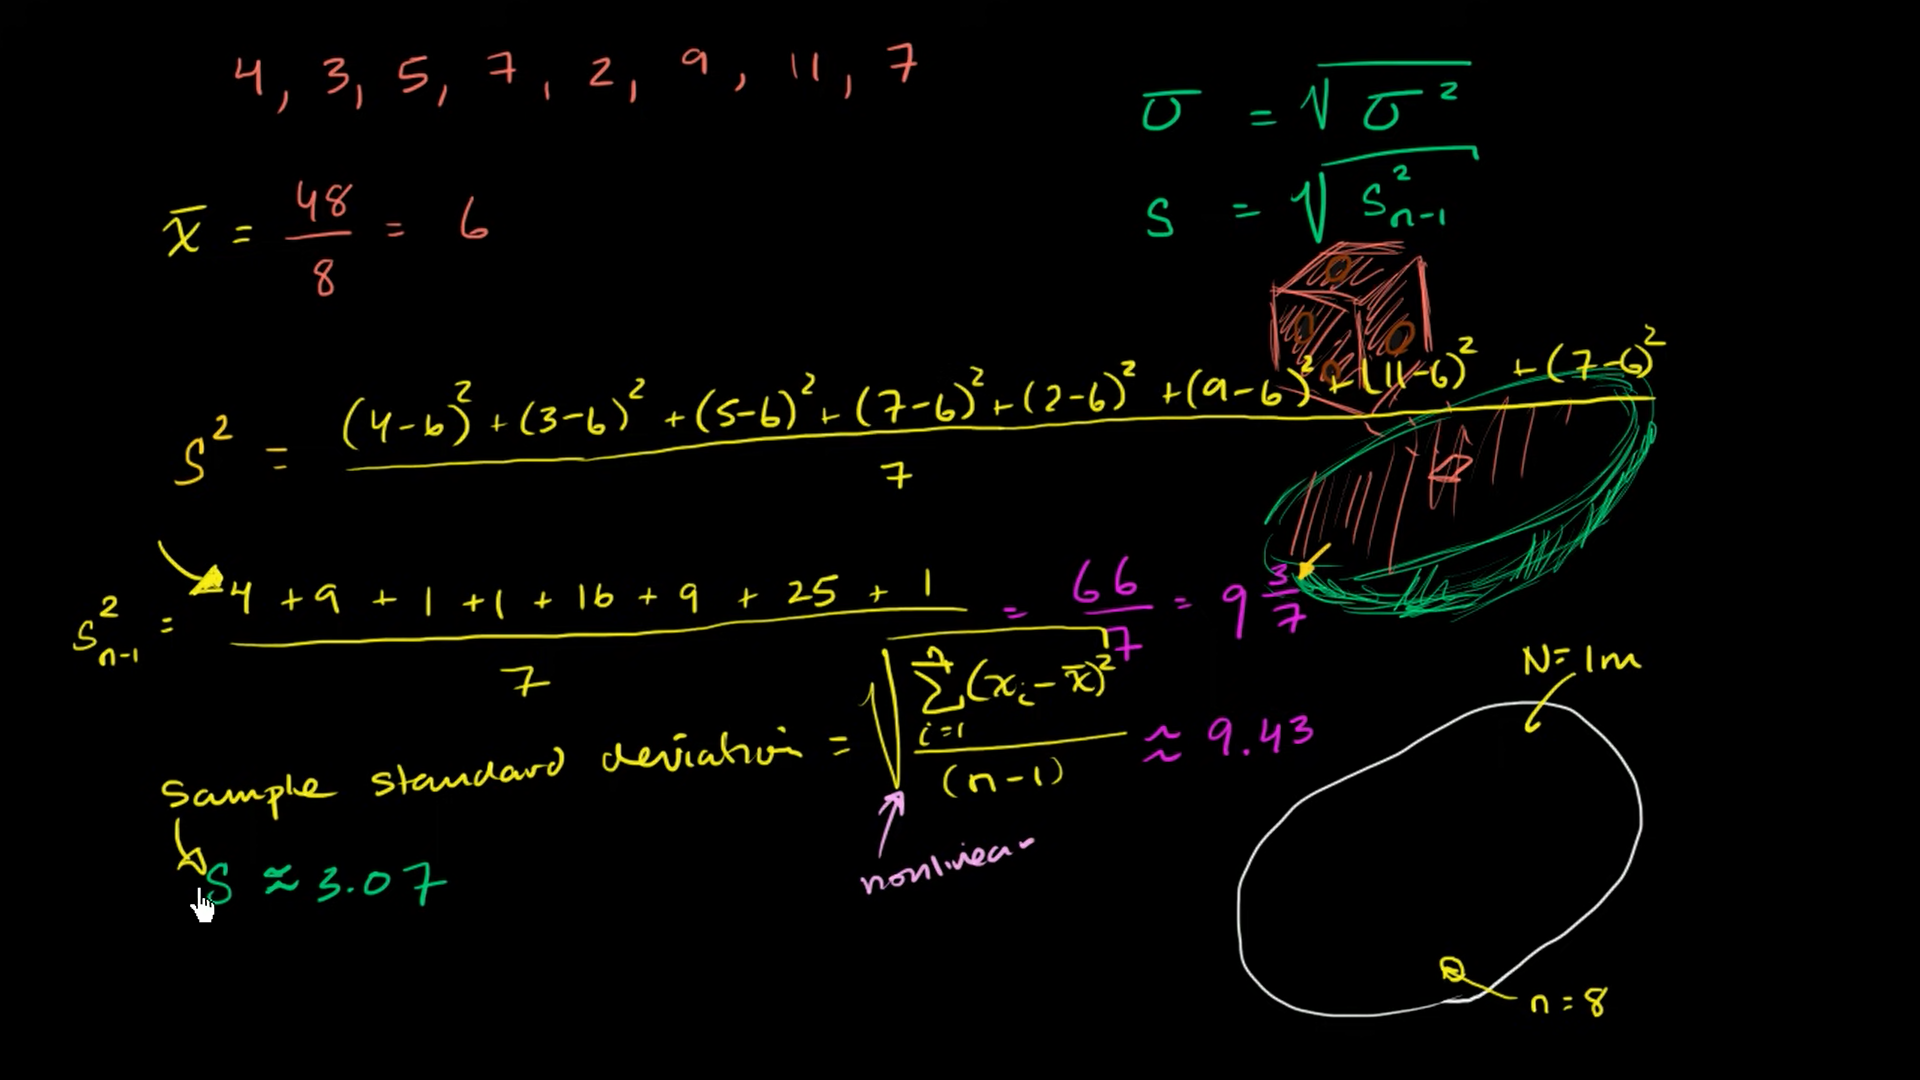 4, 3, 5, 7, 2, 9, 11, 7
σ = √σ²
x̄ = 48/8 = 6
S = √S²ₙ₋₁
S² = ((4-6)² + (3-6)² + (5-6)² + (7-6)² + (2-6)² + (9-6)² + (11-6)² + (7-6)²)/7
S²ₙ₋₁ = (4 + 9 + 1 + 1 + 16 + 9 + 25 + 1)/7 = 66/7 = 9 3/7
≈ 9.43
Sample standard deviation = √(∑ⁿᵢ₌₁(xᵢ - x̄)²/(n-1))
nonlinear
S ≈ 3.07
N = 1m
n = 8